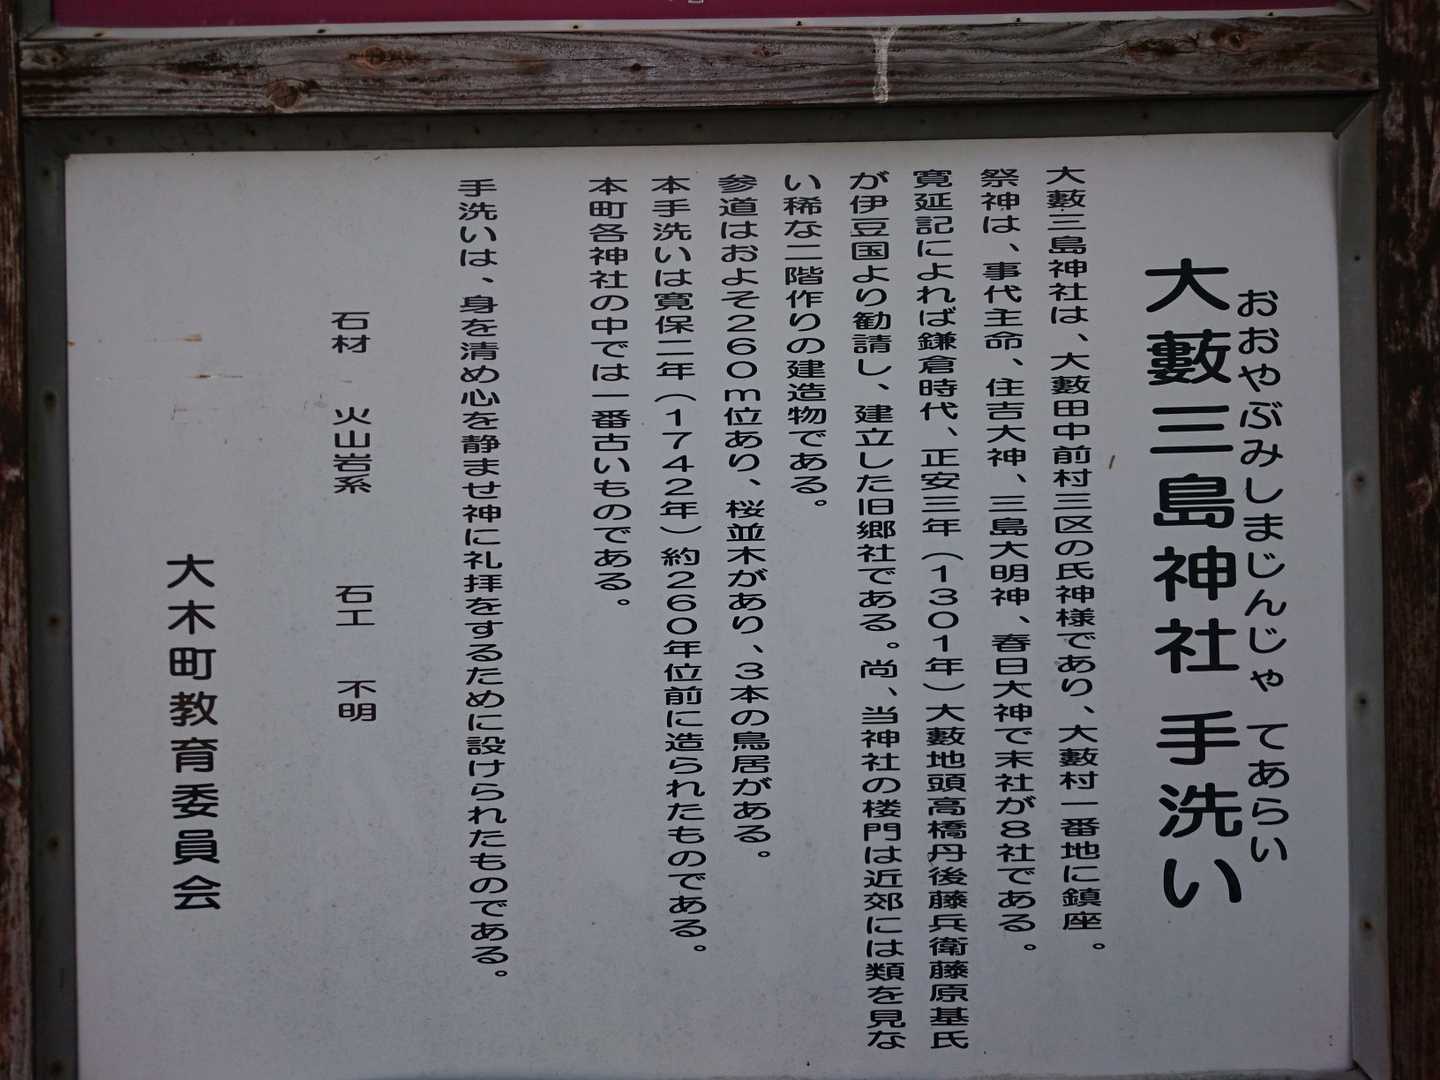 おおやぶみしまじんじゃ てあらい
大藪三島神社 手洗い
大藪三島神社は、大藪田中前村三区の氏神様であり、大藪村一番地に鎮座。
祭神は、事代主命、住吉大神、三島大明神、春日大神で末社が8社である。
寛延記によれば鎌倉時代、正安三年（1301年）大藪地頭高橋丹後藤兵衛藤原基氏
が伊豆国より勧請し、建立した旧郷社である。尚、当神社の楼門は近郊には類を見な
い稀な二階作りの建造物である。
参道はおよそ260m位あり、桜並木があり、3本の鳥居がある。
本手洗いは寛保二年（1742年）約260年位前に造られたものである。
本町各神社の中では一番古いものである。
手洗いは、身を清め心を静ませ神に礼拝をするために設けられたものである。
石材 火山岩系 石工 不明
大木町教育委員会